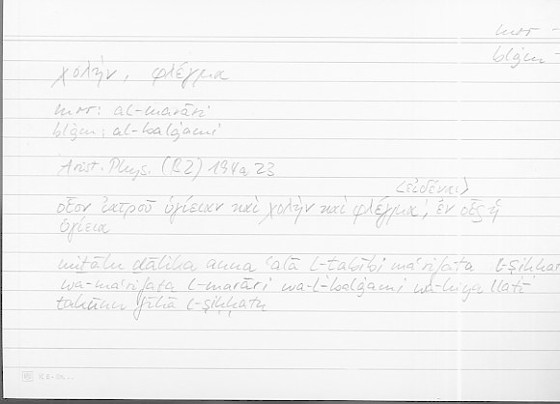 mrr -
blġm -
χολήν, φλέγμα
mrr: al-marāri
blġm: al-balġami
Arist. Phys. (B2) 194a23
<εἰδέναι>
οἷον ἰατροῦ ὑγίειαν καὶ χολὴν καὶ φλέγμα, ἐν οἷς ἡ
ὑγίεια
miṯālu ḏālika anna ʿalā l-ṭabībi maʿrifata l-ṣiḥḥat
wa-maʿrifata l-marāri wa-l-balġami wa-hiya llatī
takūnu fīhā l-ṣiḥḥatu